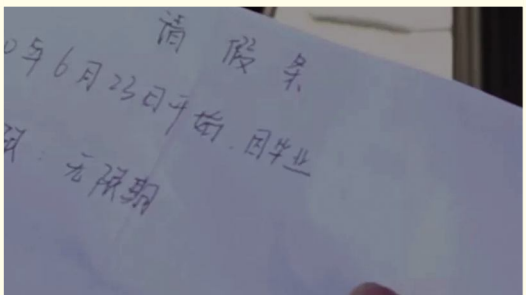 请假条
0年6月23日开始.因毕业
限:无限期